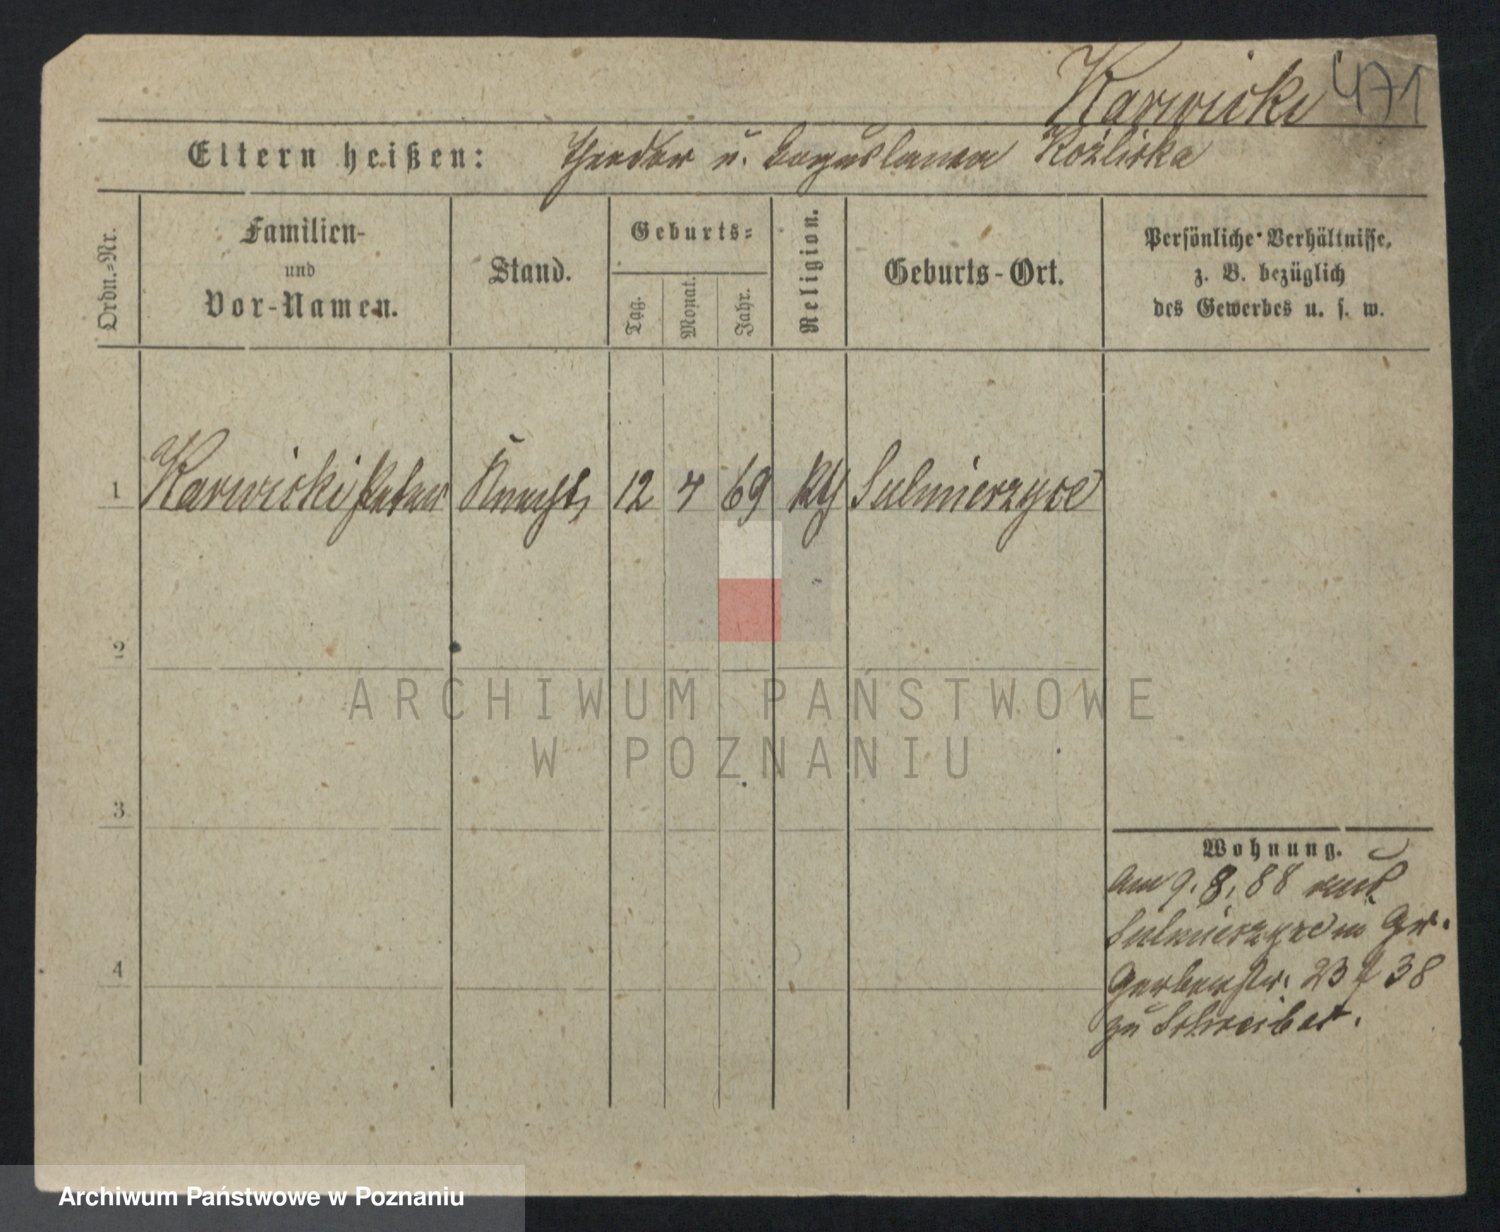 Karwicki 471
Eltern heißen: Theodor u. Boguslawa Koźlicka
Ordn.-Nr.
Familien-
und
Vor-Namen.
Stand.
Geburts-
Tag.
Monat.
Jahr.
Religion.
Geburts-Ort.
Persönliche Verhältnisse,
z. B. bezüglich
des Gewerbes u. s. w.
1 Karwicki Peter Knecht 12 4 69 Sulmierzyce
2
3
4
Wohnung.
Am 9. 8. 88 aus
Sulmierzyce in Gr.
Gerberstr. 23 / 38
zu Schreiber.
ARCHIWUM PAŃSTWOWE
W POZNANIU
Archiwum Państwowe w Poznaniu